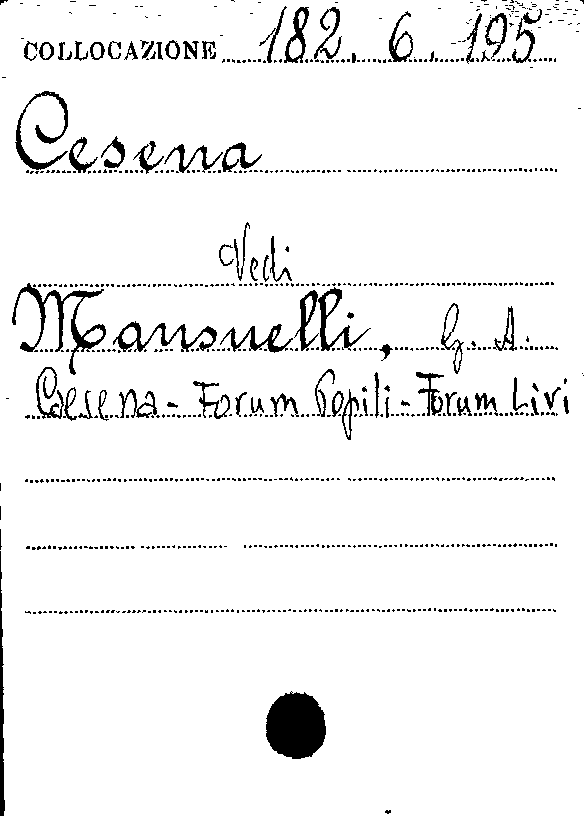 COLLOCAZIONE 182. 6. 195
Cesena
Vedi
Mansuelli, G. A.
Caesena - Forum Popili - Forum Livi